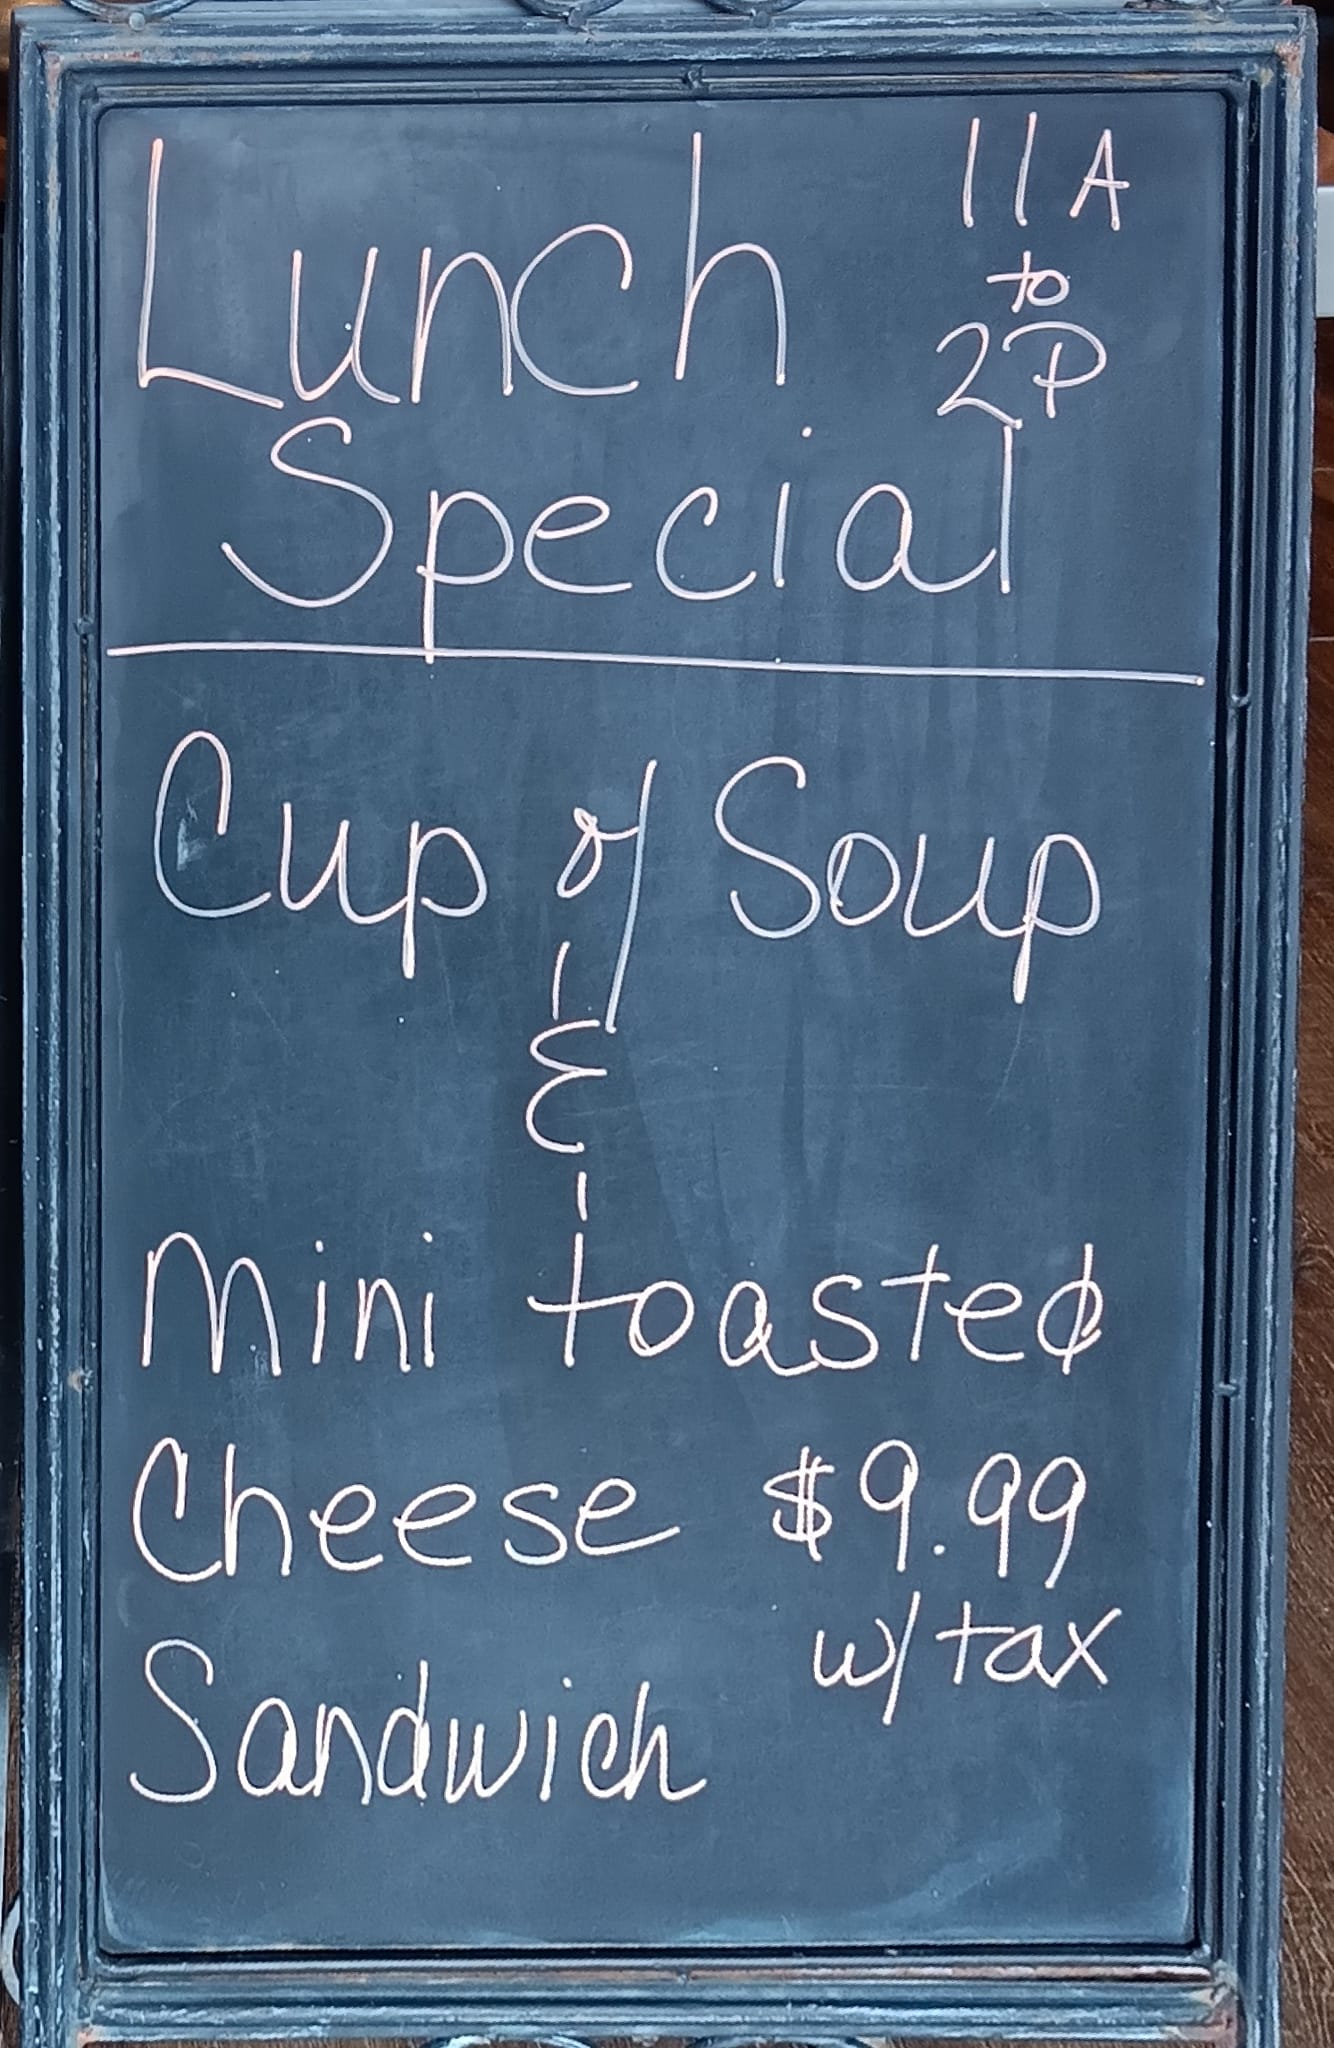 Lunch 11A
to
2P
Special
Cup of Soup
&
Mini toasted
Cheese $9.99
w/tax
Sandwich